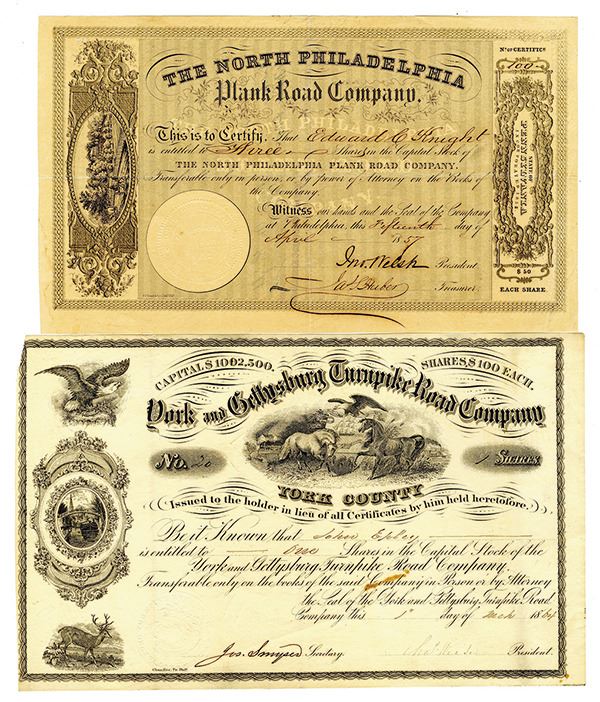 No. of CERTIFICS
100
THE NORTH PHILADELPHIA
Plank Road Company.
This is to Certify, That Edward C Knight
is entitled to Three Shares in the Capital Stock of
THE NORTH PHILADELPHIA PLANK ROAD COMPANY.
Transferable only in person, or by power of Attorney on the Books of
the Company.
Witness our hands and the Seal of the Company
at Philadelphia, this Fifteenth day of
April 1857
Jno. Welsh President.
Treasurer.
STATE OF
PENNSYLVANIA
$50
EACH SHARE
CAPITAL $1002,500. SHARES, $100 EACH.
York and Gettysburg Turnpike Road Company
No. 20 1 SHARES.
YORK COUNTY
Issued to the holder in lieu of all Certificates by him held heretofore.
Be it Known that John Epley
is entitled to One Shares in the Capital Stock of the
York and Gettysburg Turnpike Road Company.
Transferable only on the books of the said Company in Person or by Attorney
the Seal of the York and Gettysburg Turnpike Road
Company this 1st day of Mch 1864
Jos. Smyser Secretary. President.